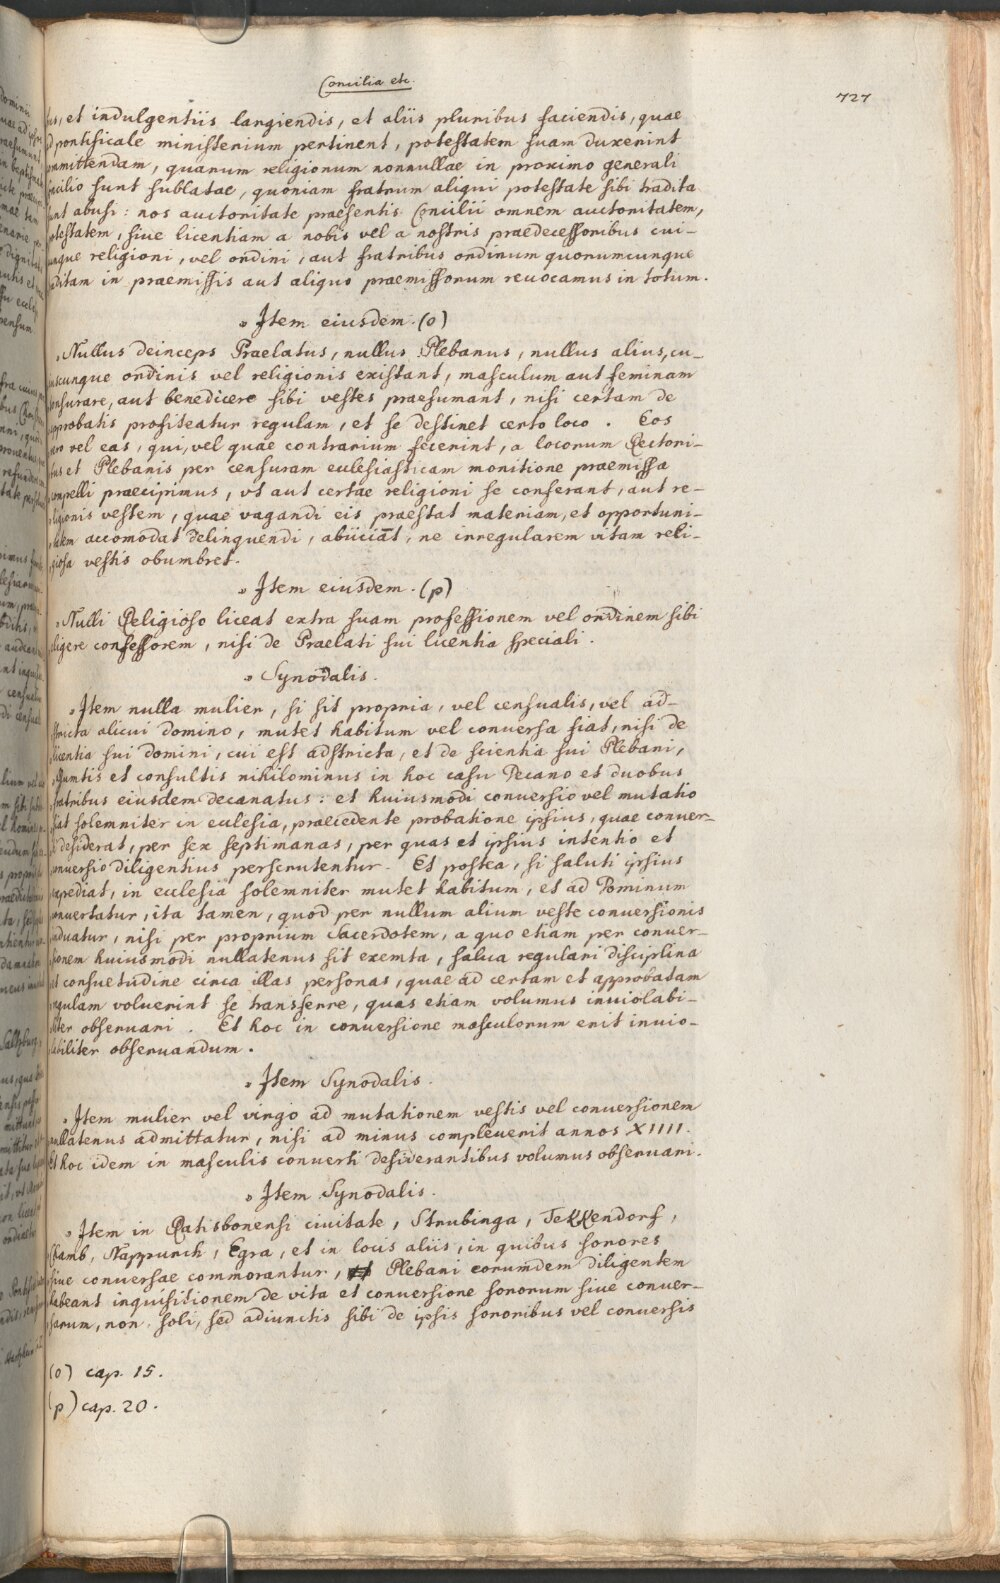 Concilia etc.
727
bus, et indulgentiis largiendis, et aliis pluribus faciendis, quae
ad pontificale ministerium pertinent, potestatem suam duxerint
committendam, quarum religionum nonnullae in proximo generali
concilio sunt sublatae, quoniam fratrum aliqui potestate sibi tradita
sunt abusi: nos auctoritate praesentis Concilii omnem auctoritatem,
potestatem, siue licentiam a nobis vel a nostris praedecessoribus cui-
cunque religioni, vel ordini, aut fratribus ordinum quorumcunque
traditam in praemissis aut aliquo praemissorum reuocamus in totum.
" Item eiusdem. (o)
" Nullus deinceps Praelatus, nullus Plebanus, nullus alius, cu-
iuscunque ordinis vel religionis existant, masculum aut feminam
tonsurare, aut benedicere sibi vestes praesumant, nisi certam de
approbatis profiteatur regulam, et se destinet certo loco. Eos
vero vel eas, qui, vel quae contrarium fecerint, a locorum Rectori-
bus et Plebanis per censuram eclesiasticam monitione praemissa
compelli praecipimus, vt aut certae religioni se conferant, aut re-
ligionis vestem, quae vagandi eis praestat materiam, et opportuni-
tatem accomodat delinquendi, abiiciāt, ne irregularem vitam reli-
giosa vestis obumbret.
" Item eiusdem. (p)
" Nulli Religioso liceat extra suam professionem vel ordinem sibi
eligere confessorem, nisi de Praelati sui licentia speciali.
" Synodalis.
" Item nulla mulier, si sit propria, vel censualis, vel ad-
stricta alicui domino, mutet habitum vel conuersa fiat, nisi de
licentia sui domini, cui est adstricta, et de scientia sui Plebani,
" Sumtis et consultis nihilominus in hoc casu Decano et duobus
fratribus eiusdem decanatus: et huiusmodi conuersio vel mutatio
fiat solemniter in eclesia, praecedente probatione ipsius, quae conuer-
ti desiderat, per sex septimanas, per quas et ipsius intentio et
conuersio diligentius perscrutentur. Et postea, si saluti ipsius
expediat, in eclesia solemniter mutet habitum, et ad Dominum
conuertatur, ita tamen, quod per nullum alium veste conuersionis
induatur, nisi per proprium Sacerdotem, a quo etiam per conuer-
sionem huiusmodi nullatenus sit exemta, salua regulari disciplina
et consuetudine circa illas personas, quae ad certam et approbatam
regulam voluerint se transferre, quas etiam volumus inuiolabi-
liter obseruari. Et hoc in conuersione masculorum erit inuio-
labiliter obseruandum.
" Item Synodalis.
" Item mulier vel virgo ad mutationem vestis vel conuersionem
nullatenus admittatur, nisi ad minus compleuerit annos XIIII.
Et hoc idem in masculis conuerti desiderantibus volumus obseruari.
" Item Synodalis.
" Item in Ratisbonensi ciuitate, Strubinga, Tekkendorf,
Chamb, Nappurch, Egra, et in locis aliis, in quibus sorores
siue conuersae commorantur, Plebani eorumdem diligentem
habeant inquisitionem de vita et conuersione sororum siue conuer-
sarum, non soli, sed adiunctis sibi de ipsis sororibus vel conuersis
(o) cap. 15.
(p) cap. 20.